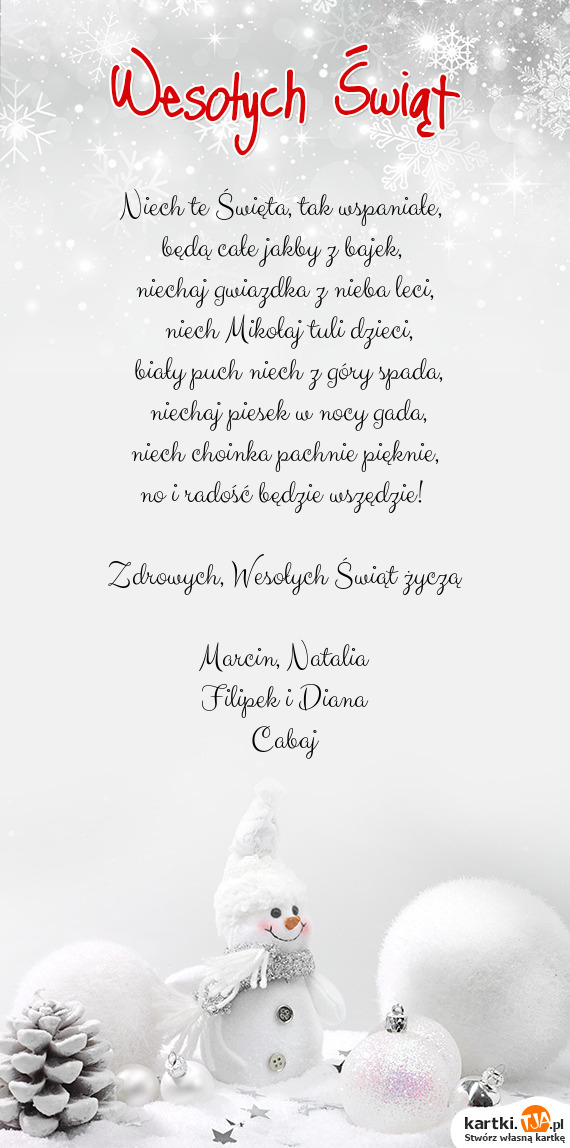 Wesołych Świąt
Niech te Święta, tak wspaniałe,
będą całe jakby z bajek,
niechaj gwiazdka z nieba leci,
niech Mikołaj tuli dzieci,
biały puch niech z góry spada,
niechaj piesek w nocy gada,
niech choinka pachnie pięknie,
no i radość będzie wszędzie!
Zdrowych, Wesołych Świąt życzą
Marcin, Natalia
Filipek i Diana
Cabaj
kartki.TJA.pl
Stwórz własną kartkę